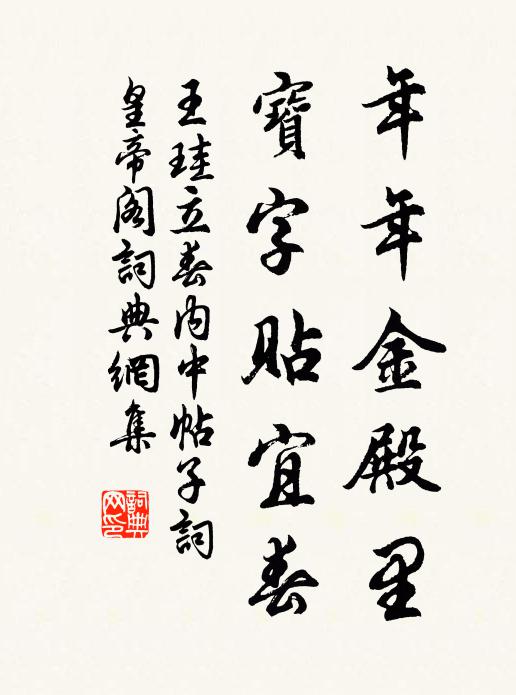 年年金殿里
寶字貼宜春
王珪立春内中帖子詞
皇帝阁詞典網集
詞典网印